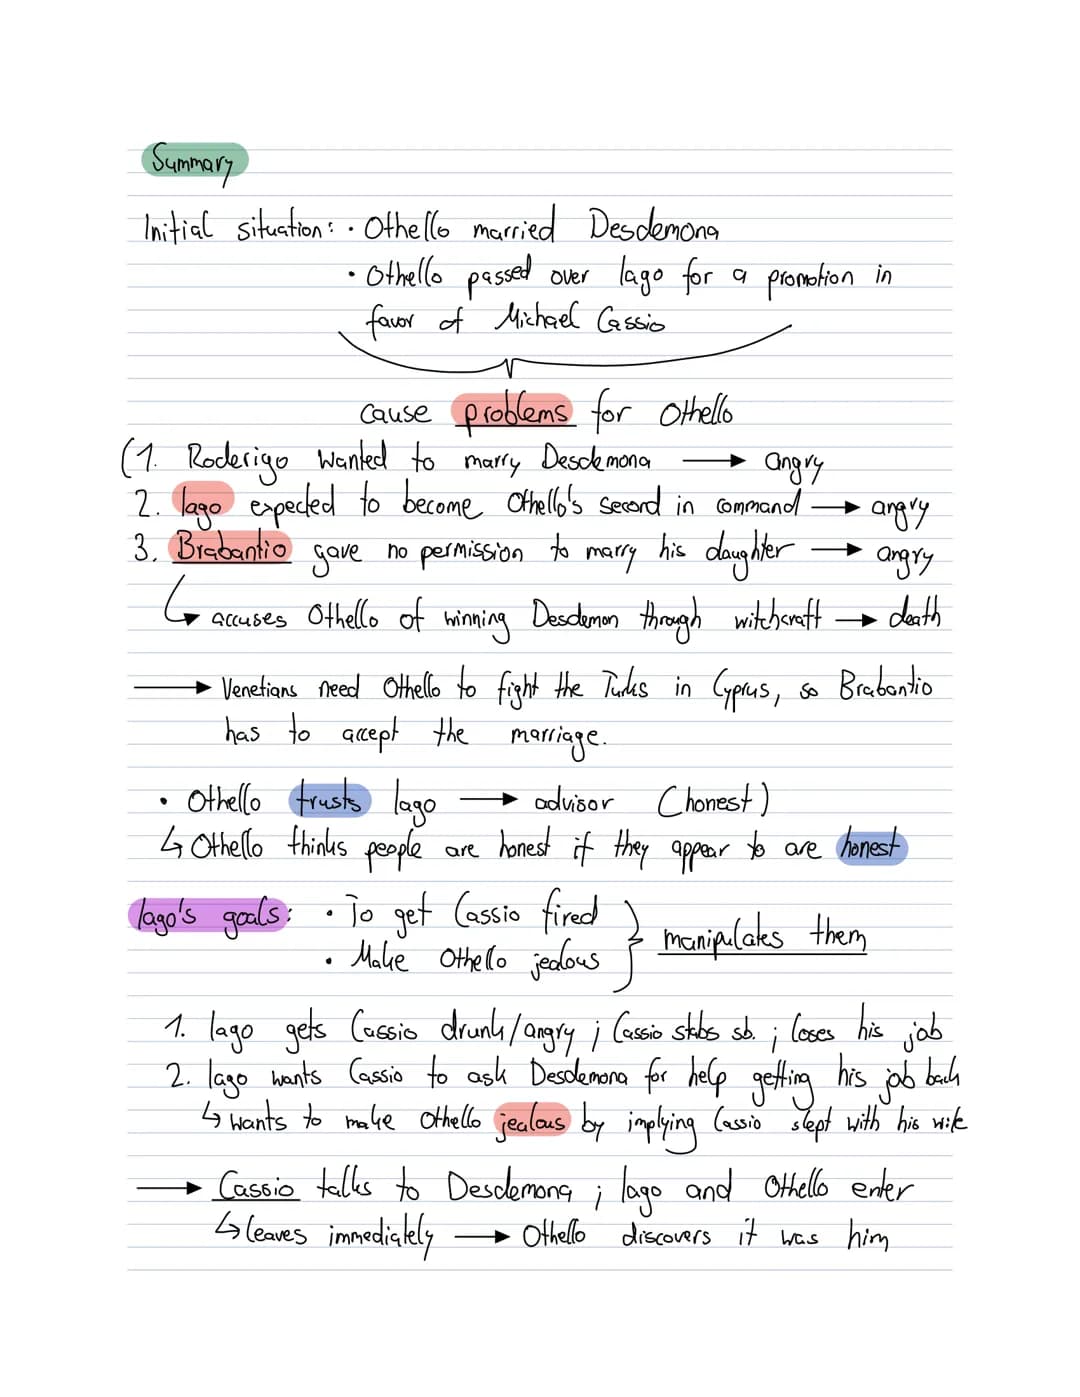 Summary
Initial situation: • Othello married Desdemona
• Othello passed over Iago for a promotion in
favor of Michael Cassio
cause problems for Othello
(1. Roderigo wanted to marry Desdemona → angry
2. Iago expected to become Othello's second in command → angry
3. Brabantio gave no permission to marry his daughter → angry
↳ accuses Othello of winning Desdemon through witchcraft → death
→ Venetians need Othello to fight the Turks in Cyprus, so Brabantio
has to accept the marriage.
• Othello trusts Iago → advisor (honest)
↳ Othello thinks people are honest if they appear to are honest
Iago's goals: • To get Cassio fired
• Make Othello jealous } manipulates them
1. Iago gets Cassio drunk/angry ; Cassio stabs sb. ; loses his job
2. Iago wants Cassio to ask Desdemona for help getting his job back
↳ wants to make Othello jealous by implying Cassio slept with his wife
→ Cassio talks to Desdemona ; Iago and Othello enter
↳ leaves immediately → Othello discovers it was him